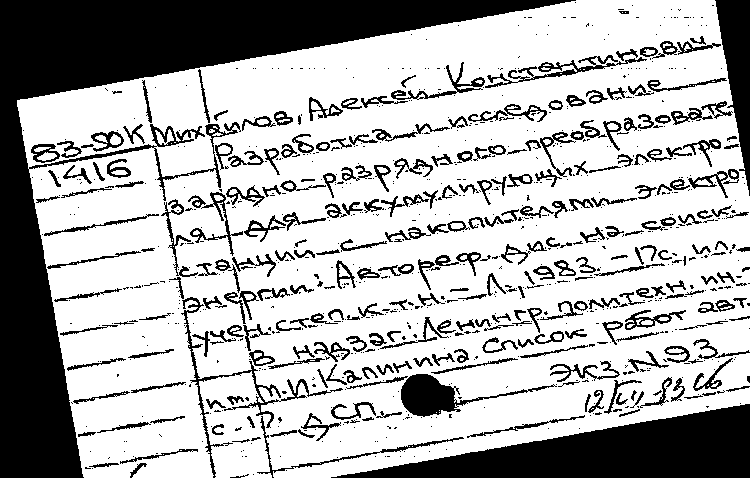 83-50К Михайлов, Алексей Константинович
1416 Разработка и исследование
зарядно-разрядного преобразовате-
ля для аккумулирующих электро-
станций с накопителями электро-
энергии: Автореф. дис. на соиск.
учен. степ. к.т.н. - Л., 1983. - 17с., ил.
В надзаг.: Ленингр. политехн. ин-т
им. М.И. Калинина. Список работ авт.
с. 17. ДСП. Экз. N 93